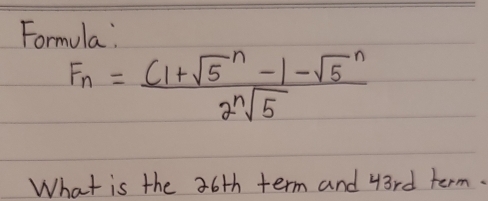 Formula:
Fn = (1+√5ⁿ - 1-√5ⁿ
2ⁿ√5
What is the 26th term and 43rd term.